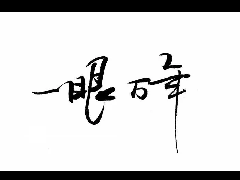 一眼万年